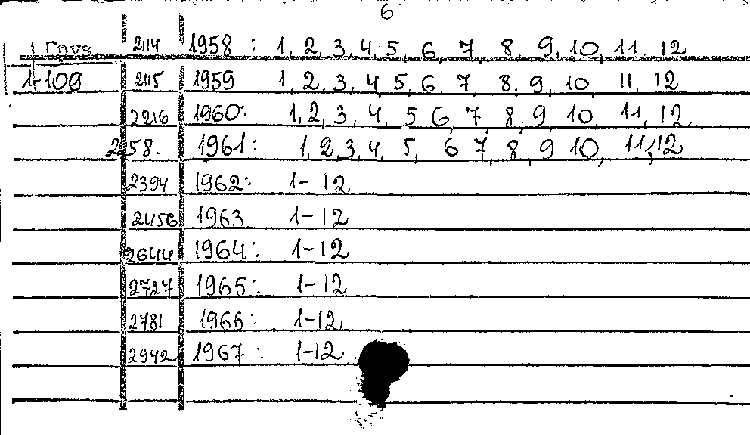 6
2114 1958 : 1, 2, 3, 4, 5, 6, 7, 8, 9, 10, 11, 12
1-109 2115 1959 1, 2, 3, 4, 5, 6, 7, 8, 9, 10, 11, 12
2216 1960: 1, 2, 3, 4, 5, 6, 7, 8, 9, 10, 11, 12
2258. 1961: 1, 2, 3, 4, 5, 6, 7, 8, 9, 10, 11, 12
2394 1962: 1-12
2456 1963 1-12
2644 1964: 1-12
2727 1965: 1-12
2781 1966: 1-12
2942 1967: 1-12